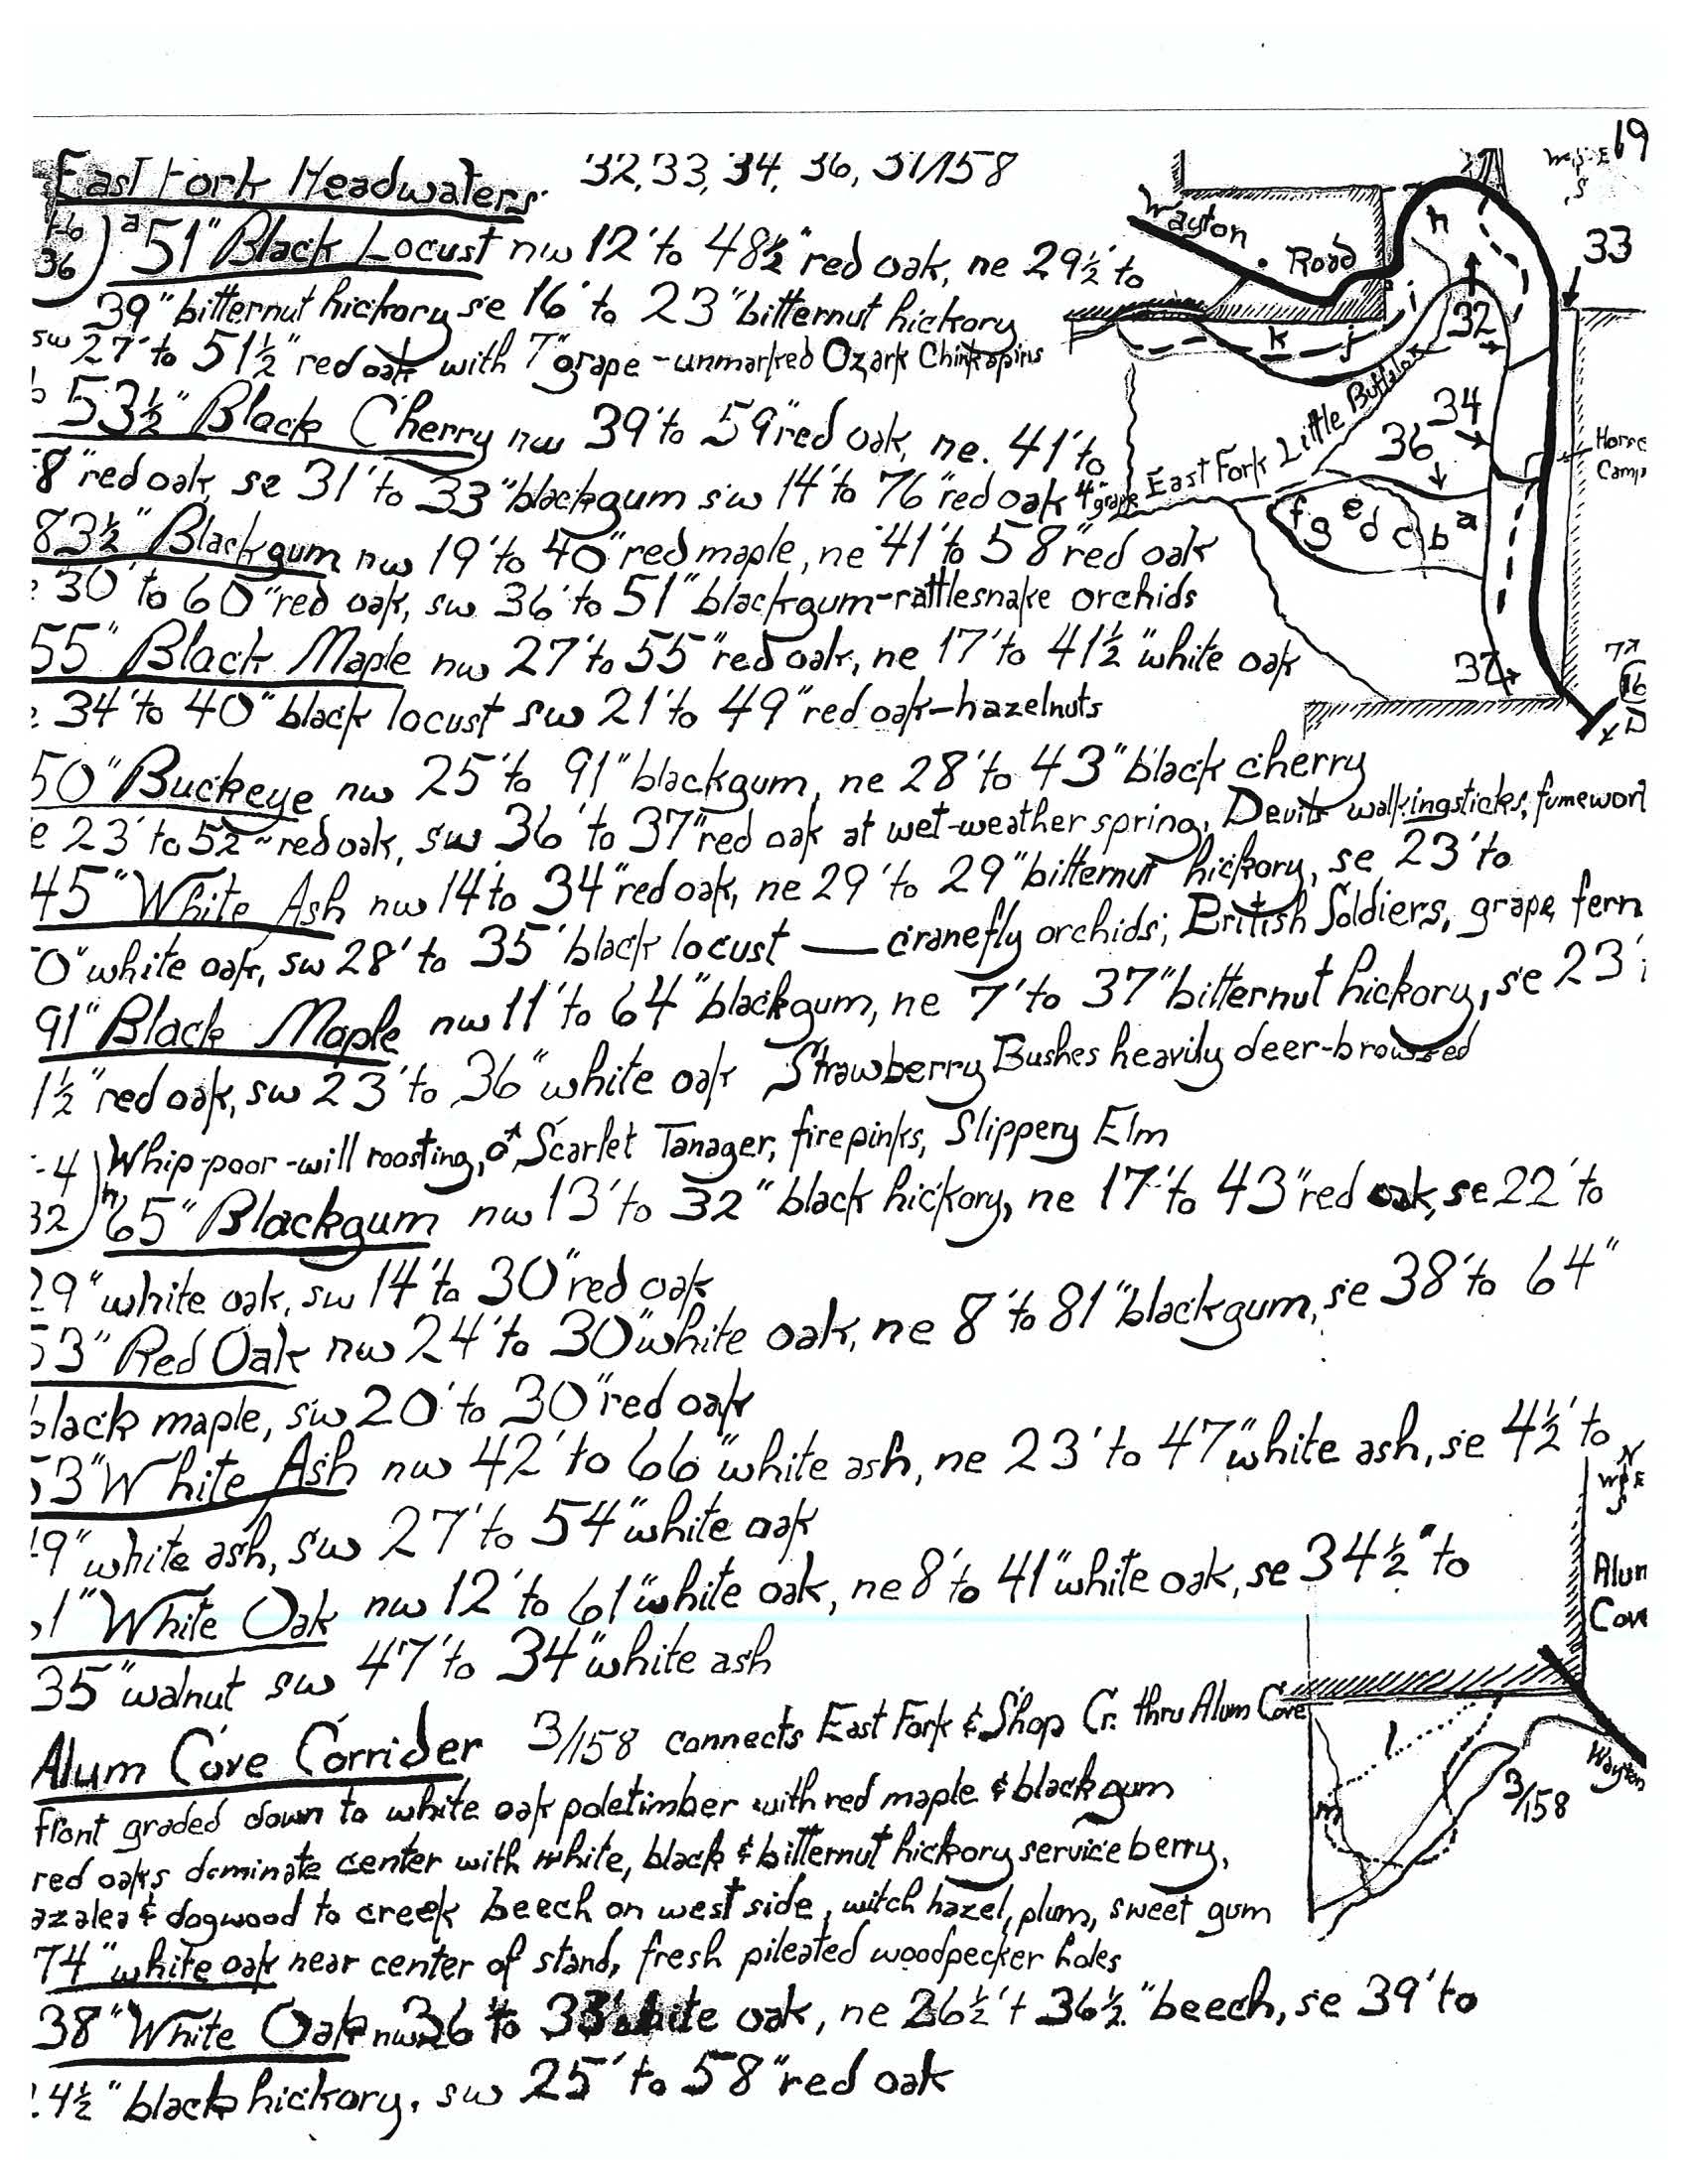 19
East Fork Headwaters 32, 33, 34, 36, 37/158
36) a 51" Black Locust nw 12' to 48½" red oak, ne 29½' to
39" bitternut hickory se 16' to 23" bitternut hickory
sw 27' to 51½" red oak with 7" grape - unmarked Ozark Chinkapins
b 53½" Black Cherry nw 39' to 59" red oak, ne. 41' to
8" red oak, se 31' to 33" blackgum sw 14' to 76" red oak 4" grape
83½" Blackgum nw 19' to 40" red maple, ne 41' to 58" red oak
30' to 60" red oak, sw 36' to 51" blackgum-rattlesnake orchids
55" Black Maple nw 27' to 55" red oak, ne 17' to 41½" white oak
34' to 40" black locust sw 21' to 49" red oak-hazelnuts
50" Buckeye nw 25' to 91" blackgum, ne 28' to 43" black cherry
e 23' to 52" red oak, sw 36' to 37" red oak at wet-weather spring, Devils walkingsticks, fumewort
45" White Ash nw 14' to 34" red oak, ne 29' to 29" bitternut hickory, se 23' to
0" white oak, sw 28' to 35" black locust — cranefly orchids; British Soldiers, grape fern
91" Black Maple nw 11' to 64" blackgum, ne 7' to 37" bitternut hickory, se 23'
1½" red oak, sw 23' to 36" white oak Strawberry Bushes heavily deer-browsed
-4) Whip-poor-will roosting, ♂ Scarlet Tanager, firepinks, Slippery Elm
32) h 65" Blackgum nw 13' to 32" black hickory, ne 17' to 43" red oak, se 22' to
29" white oak, sw 14' to 30" red oak
53" Red Oak nw 24' to 30" white oak, ne 8' to 81" blackgum, se 38' to 64"
black maple, sw 20' to 30" red oak
53" White Ash nw 42' to 66" white ash, ne 23' to 47" white ash, se 4½' to
9" white ash, sw 27' to 54" white oak
1" White Oak nw 12' to 61" white oak, ne 8' to 41" white oak, se 34½" to
35" walnut sw 47' to 34" white ash
Alum Cove Corrider 3/158 connects East Fork & Shop Cr. thru Alum Cove
front graded down to white oak poletimber with red maple & blackgum
red oaks dominate center with white, black & bitternut hickory service berry,
azalea & dogwood to creek beech on west side, witch hazel, plum, sweet gum
74" white oak near center of stand, fresh pileated woodpecker holes
38" White Oak nw 36 to 33" white oak, ne 26½' t 36½" beech, se 39' to
4½" black hickory, sw 25' to 58" red oak
Wayton Road
33
h
i
32
k j
East Fork Little Buffalo
34
36
Horse Camp
f g e d c b a
37
16
N
W E
S
Alum Cove
l
m
3/158
Wayton